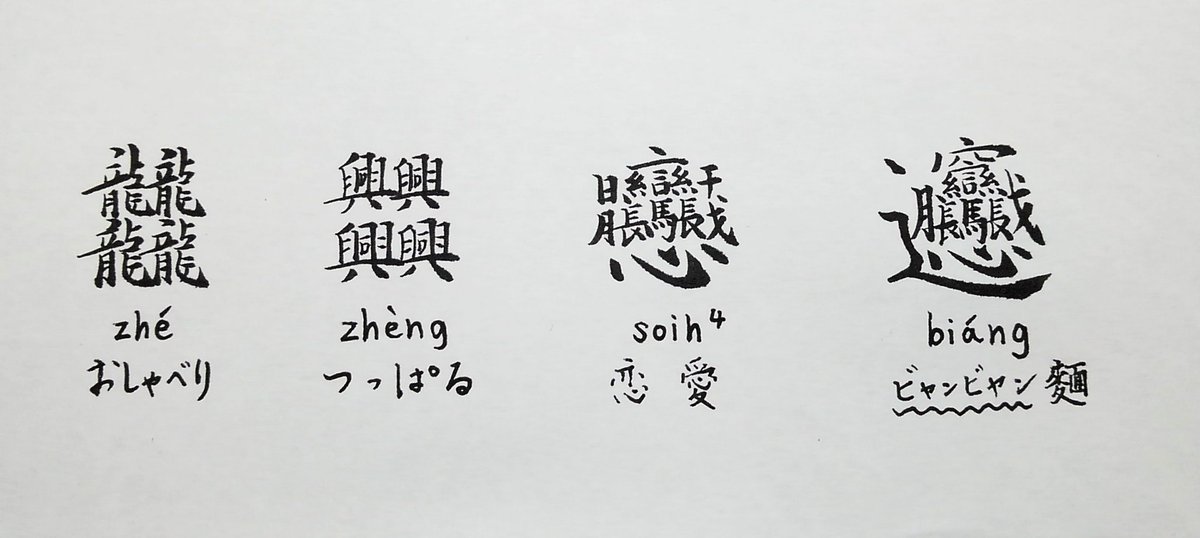 𪚥 𠔻 𰻞
zhé zhèng soih⁴ biáng
おしゃべり つっぱる 恋愛 ビャンビャン麵